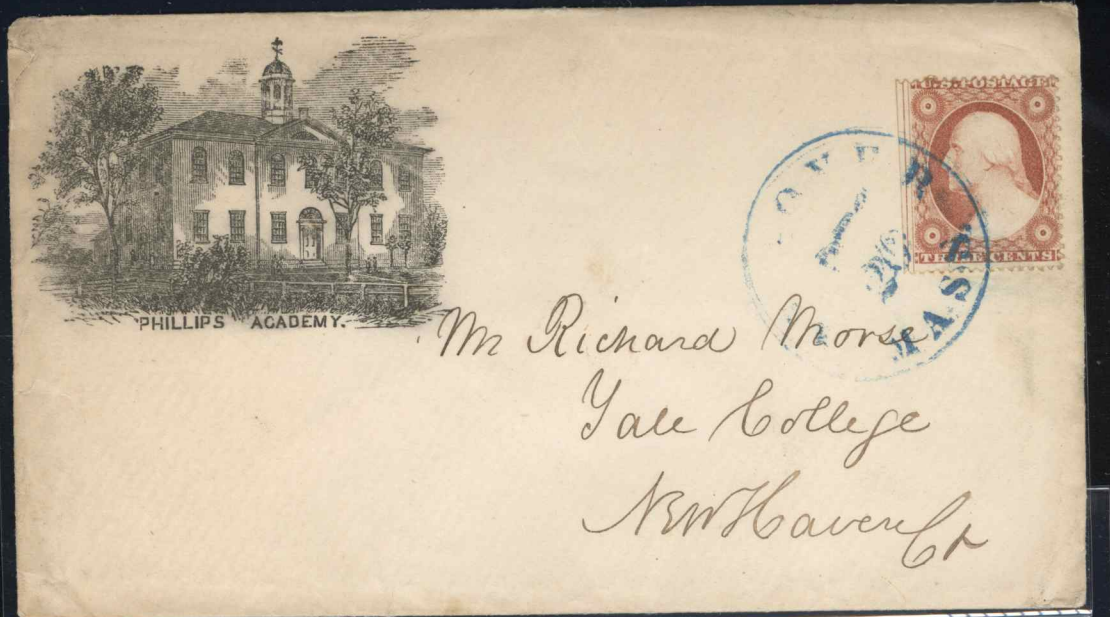 PHILLIPS ACADEMY.
U.S. POSTAGE
THREE CENTS
OVER
MASS
Mr Richard Morse
Yale College
New Haven Ct